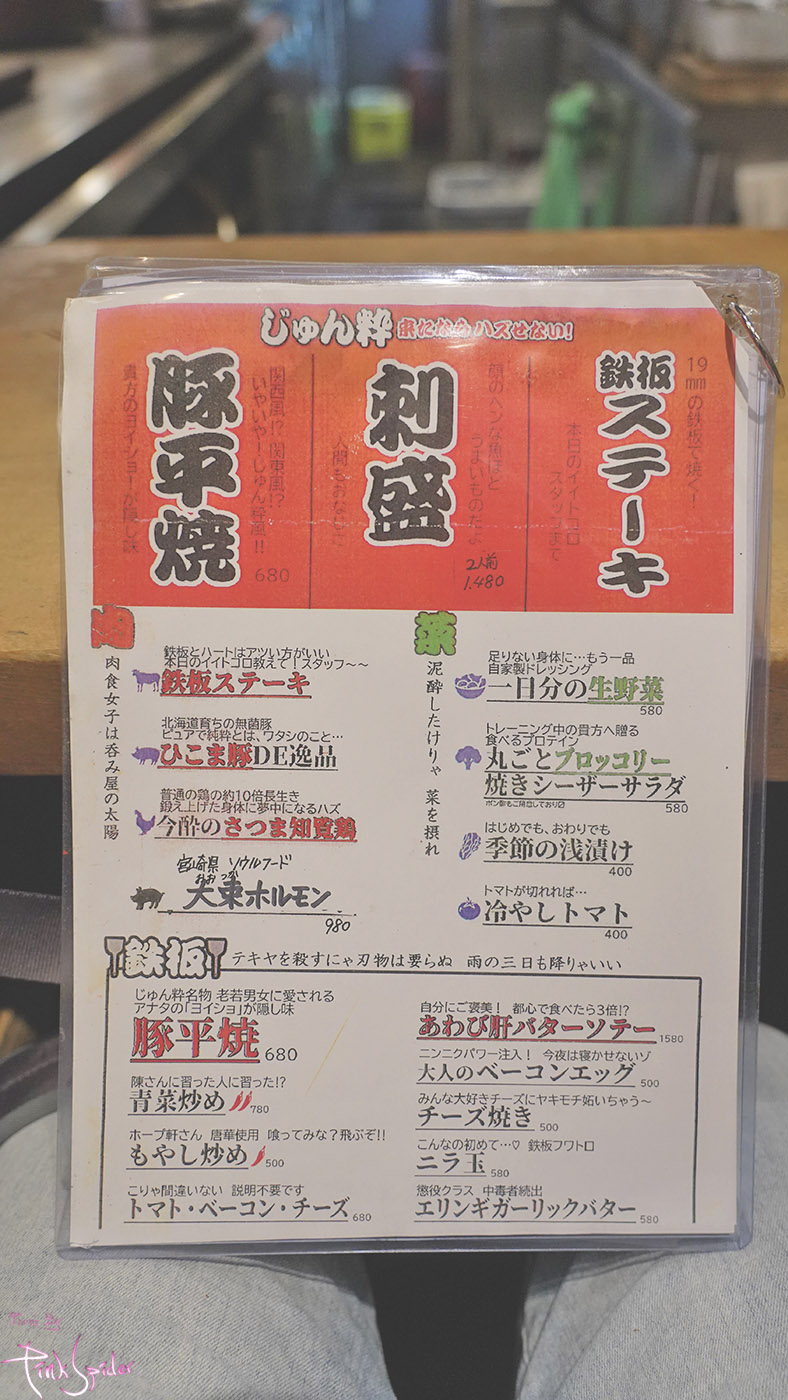 じゅん粋 来たなら ハズせない!
19mmの鉄板で焼く!
鉄板ステーキ
本日のイイトコロ
スタッフまで
顔のヘンな魚ほど
うまいものだよ
刺盛
人間もおなじさ
2人前
1.480
関西風!?関東風!?
いやいや!じゅん粋風!!
豚平焼
680
貴方のヨイショ!が隠し味
肉
肉食女子は呑み屋の太陽
鉄板とハートはアツい方がいい
本日のイイトコロ教えて!スタッフ〜〜
鉄板ステーキ
北海道育ちの無菌豚
ピュアで純粋とは、ワタシのこと…
ひこま豚DE逸品
普通の鶏の約10倍長生き
鍛え上げた身体に夢中になるハズ
今酔のさつま知覧鶏
宮崎県 ソウルフード
大束ホルモン
980
菜
泥酔したけりゃ 菜を摂れ
足りない身体に…もう一品
自家製ドレッシング
一日分の生野菜
580
トレーニング中の貴方へ贈る
食べるプロテイン
丸ごとブロッコリー
焼きシーザーサラダ
ポン酢もご用意しており〼
580
はじめでも、おわりでも
季節の浅漬け
400
トマトが切れれば…
冷やしトマト
400
鉄板 テキヤを殺すにゃ刃物は要らぬ 雨の三日も降りゃいい
じゅん粋名物 老若男女に愛される
アナタの「ヨイショ」が隠し味
豚平焼 680
陳さんに習った人に習った!?
青菜炒め 780
ホープ軒さん 唐華使用 喰ってみな?飛ぶぞ!!
もやし炒め 500
こりゃ間違いない 説明不要です
トマト・ベーコン・チーズ 680
自分にご褒美! 都心で食べたら3倍!?
あわび肝バターソテー 1580
ニンニクパワー注入! 今夜は寝かせないゾ
大人のベーコンエッグ 500
みんな大好きチーズにヤキモチ妬いちゃう〜
チーズ焼き 500
こんなの初めて…♡ 鉄板フワトロ
ニラ玉 580
懲役クラス 中毒者続出
エリンギガーリックバター 580
Photo By
Pink Spider